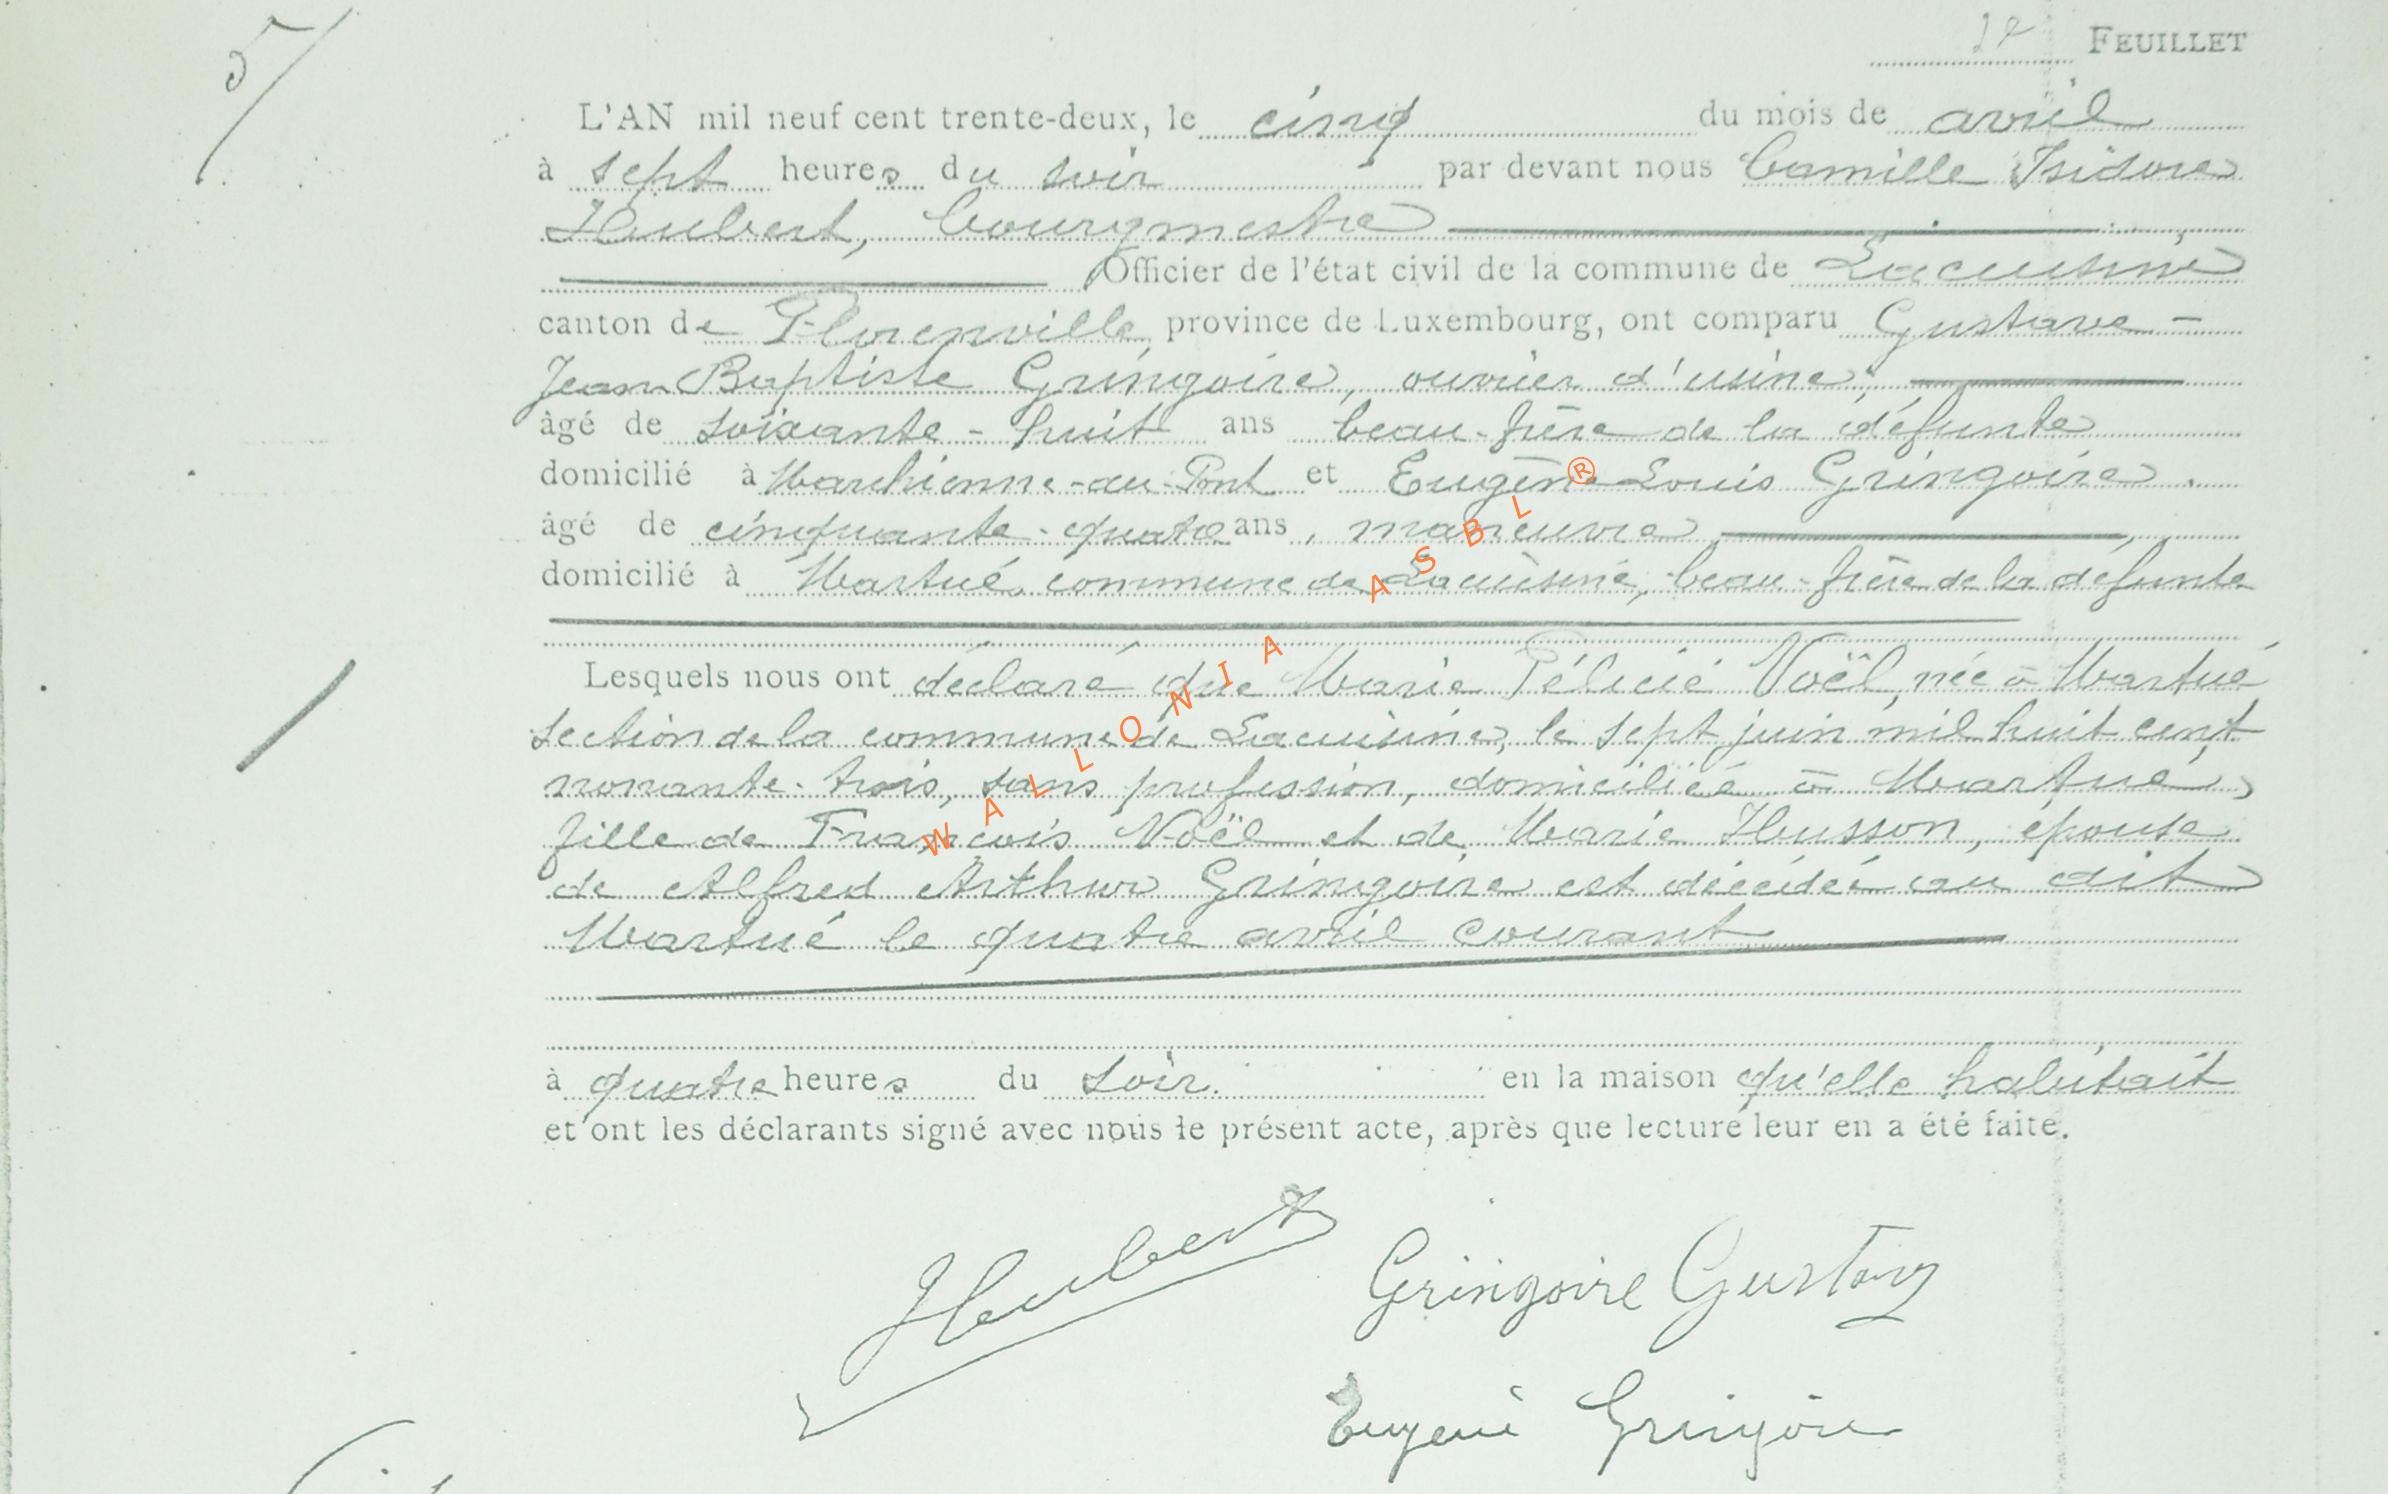 5/
2e FEUILLET
L'AN mil neuf cent trente-deux, le cinq du mois de avril
à sept heures du soir par devant nous Camille Isidore
Hubert, bourgmestre
Officier de l'état civil de la commune de Lacuisine
canton de Florenville province de Luxembourg, ont comparu Gustave -
Jean Baptiste Gringoire, ouvrier d'usine,
âgé de soixante-huit ans beau-frère de la défunte
domicilié à Marchienne-au-Pont et Eugène Louis Gringoire
âgé de cinquante-quatre ans, manœuvre
domicilié à Martué commune de Lacuisine, beau-frère de la défunte
Lesquels nous ont déclaré que Marie Félicie Noël, née à Martué
section de la commune de Lacuisine, le sept juin mil huit cent
nonante-trois, sans profession, domiciliée à Martué,
fille de François Noël et de Marie Husson, épouse
de Alfred Arthur Gringoire est décédée au dit
Martué le quatre avril courant
à quatre heures du soir. en la maison qu'elle habitait
et ont les déclarants signé avec nous le présent acte, après que lecture leur en a été faite.
Hubert
Gringoire Gustave
Eugene Gringoire
WALLONIA ASBL ®